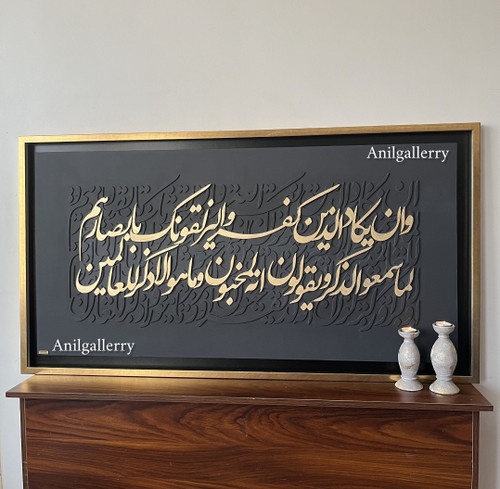 Anilgallerry
وان یکاد الذین کفرو الیزلقونک بابصارهم
لما سمعوا الذکر و یقولون انه لمجنون و ما هو الا ذکر للعالمین
Anilgallerry